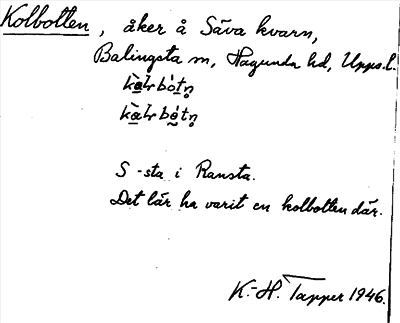 Kolbotten, åker å Säva kvarn,
Balingsta sn, Hagunda hd, Upps.l.
S -sta i Ransta.
Det lär ha varit en kolbotten där.
K.-H. Tapper 1946.